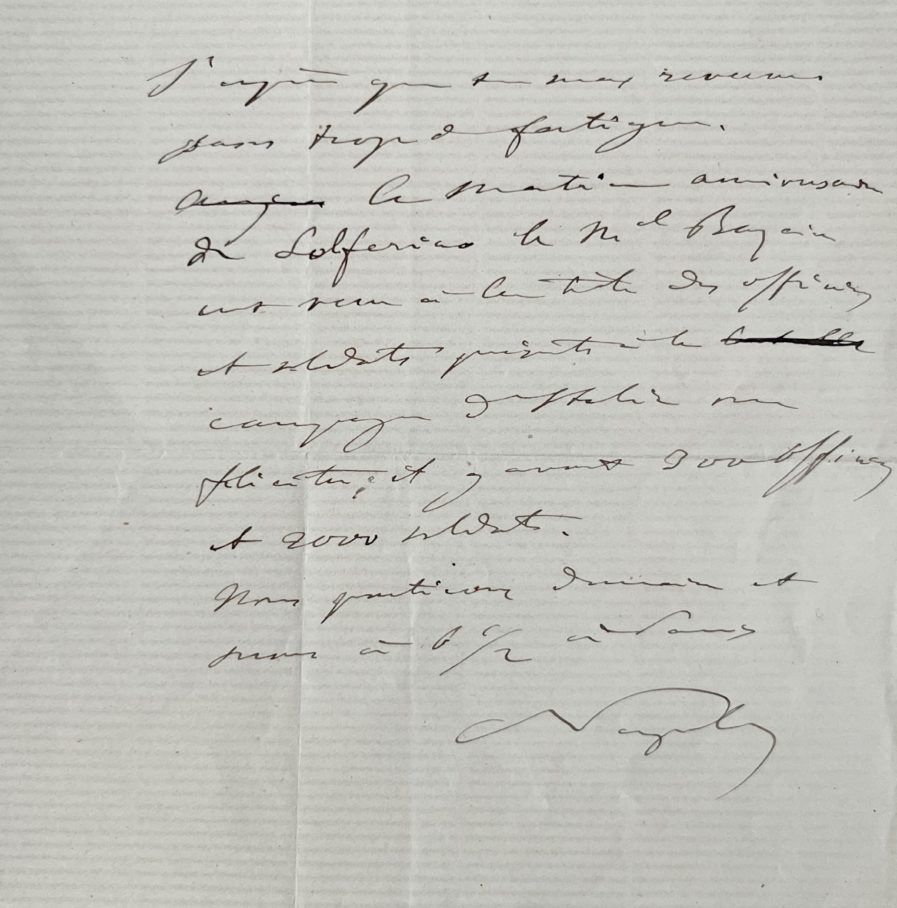 J'espère que tu nous reviens
sans trop de fatigue.
ce matin anniversaire
de Solferino le Mal Bazaine
est venu à la tête des officiers
et soldats présents à la
campagne d'Italie me
féliciter, il y avait 300 Officiers
et 2000 soldats.
Nous partirons demain et
serons à 6 1/2 à Paris
Napoléon